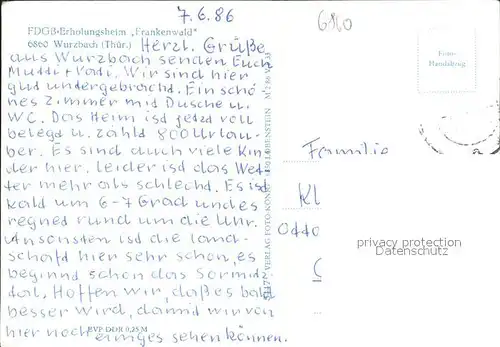 7.6.86
6810
FDGB-Erholungsheim „Frankenwald"
6860 Wurzbach (Thür.)
Herzl. Grüße
aus Wurzbach senden Euch
Mutti + Vati. Wir sind hier
gut untergebracht. Ein schö
nes Zimmer mit Dusche u.
WC. Das Heim ist jetzt voll
belegt u. zählt 800 Urlau-
ber. Es sind auch viele Kin
der hier. Leider ist das Wet-
ter mehr als schlecht. Es ist
kalt um 6-7 Grad und es
regnet rund um die Uhr.
Ansonsten ist die Land-
schaft hier sehr schön, es
beginnt schon das Sormitz-
tal. Hoffen wir, daß es bald
besser wird, damit wir von
hier noch einiges sehen können.
EVP DDR 0,25 M
VERLAG FOTO-
LOBENSTEIN
Foto-
Handabzug
Familie
Kl
Otto
privacy protection
Datenschutz